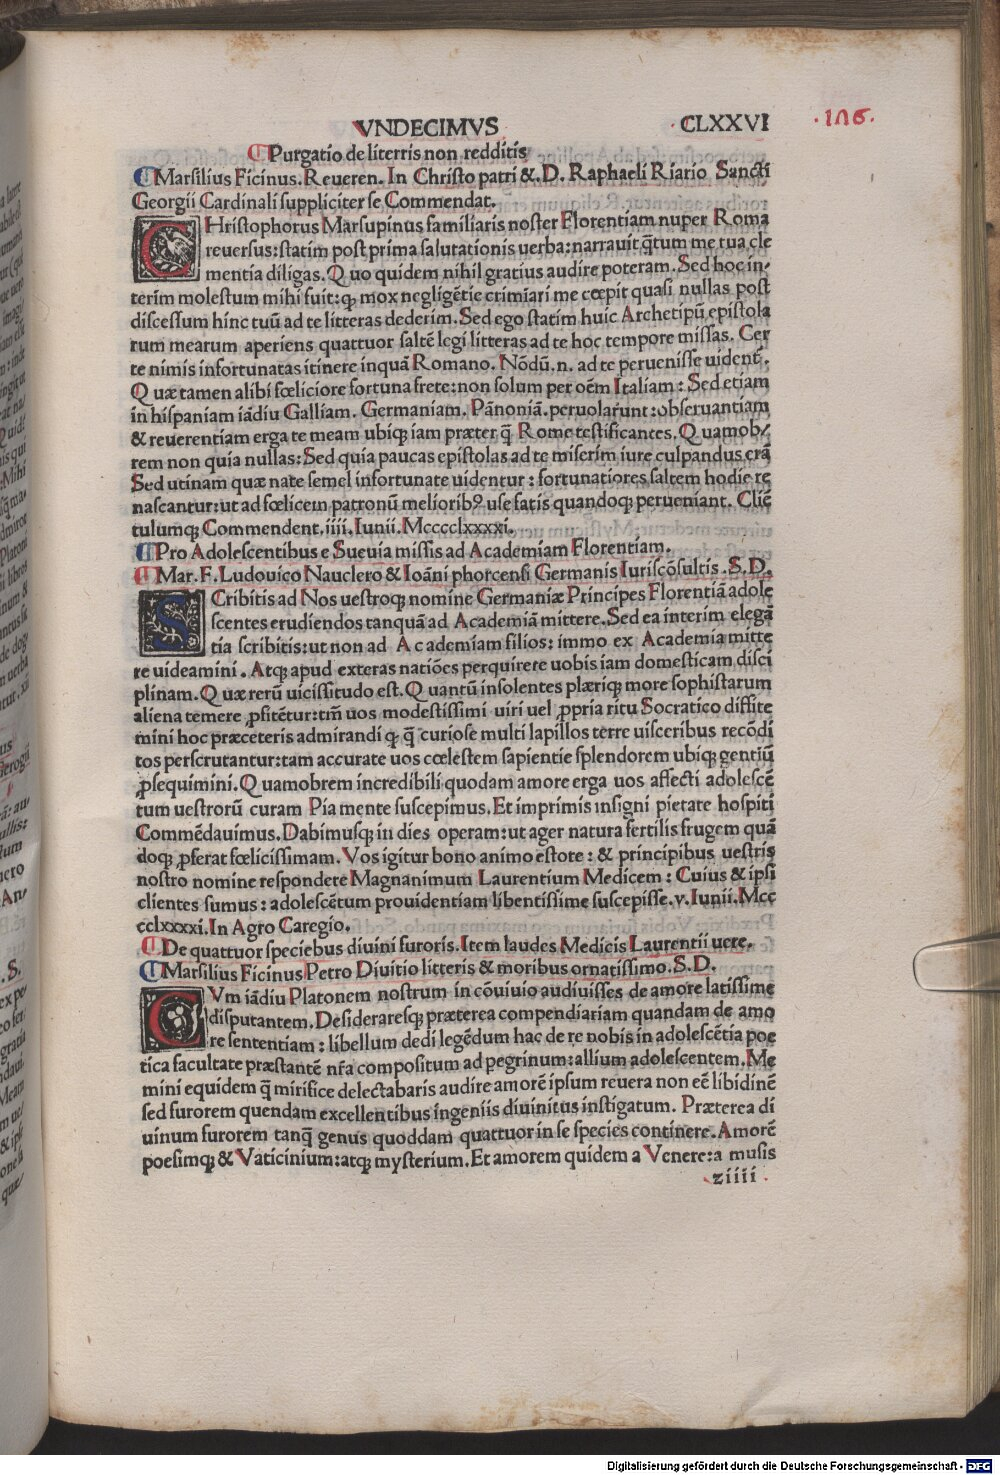 VNDECIMVS CLXXVI
.176.
Purgatio de literris non redditis
Marsilius Ficinus. Reueren. In Christo patri &. D. Raphaeli Riario Sancti
Georgii Cardinali suppliciter se Commendat.
CHristophorus Marsupinus familiaris noster Florentiam nuper Roma
reuersus: statim post prima salutationis uerba: narrauit q̃tum me tua cle
mentia diligas. Quo quidem nihil gratius audire poteram. Sed hoc in-
terim molestum mihi fuit: qꝫ mox negligẽtie crimĩari me cœpit quasi nullas post
discessum hinc tuũ ad te litteras dederim. Sed ego statim huic Archetipũ epistola
rum mearum aperiens quattuor saltẽ legi litteras ad te hoc tempore missas. Cer
te nimis infortunatas itinere inquã Romano. Nõdũ. n. ad te peruenisse uident̃.
Quæ tamen alibi fœliciore fortuna frete: non solum per oẽm Italiam: Sed etiam
in hispaniam iãdiu Galliam. Germaniam. Pãnoniã. peruolar̃unt: obseruantiam
& reuerentiam erga te meam ubiqꝫ iam præter q̃ Rome testificantes. Quamob/
rem non quia nullas: Sed quia paucas epistolas ad te miserim iure culpandus erã
Sed utinam quæ nate semel infortunate uidentur: fortunatiores saltem hodie re
nascantur: ut ad fœlicem patronũ meliorib⁹ use fatis quandoqꝫ perueniant. Cliẽ
tulumqꝫ Commendent. iiii. Iunii. Mcccclxxxxi.
Pro Adolescentibus e Sueuia missis ad Academiam Florentiam.
Mar. F. Ludouico Nauclero & Ioãni phorcensi Germanis Iuriscõsultis. S. D.
SCribitis ad Nos uestroqꝫ nomine Germaniæ Principes Florentiã adole
scentes erudiendos tanquã ad Academiã mittere. Sed ea interim elegã
tia scribitis: ut non ad Academiam filios: immo ex Academia mitte
re uideamini. Atqꝫ apud exteras natiões perquirere uobis iam domesticam disci
plinam. Quæ rerũ uicissitudo est. Quantũ insolentes plæriqꝫ more sophistarum
aliena temere ꝓfitẽtur: tm̃ uos modestissimi uiri uel ꝓpria ritu Socratico diffite
mini hoc præceteris admirandi qꝫ q̃ curiose multi lapillos terre uisceribus recõdi
tos perscrutantur: tam accurate uos cœlestem sapientie splendorem ubiqꝫ gentiũ
ꝓsequimini. Quamobrem incredibili quodam amore erga uos affecti adolescẽ
tum uestrorũ curam Pia mente suscepimus. Et imprimis insigni pietate hospiti
Commẽdauimus. Dabimusqꝫ in dies operam: ut ager natura fertilis frugem quã
doqꝫ ꝓferat fœlicissimam. Vos igitur bono animo estote: & principibus uestris
nostro nomine respondete Magnanimum Laurentium Medicem: Cuius & ipsi
clientes sumus: adolescẽtum prouidentiam libentissime suscepisse. v. Iunii. Mcc
cclxxxxi. In Agro Caregio.
De quattuor speciebus diuini furoris. Item laudes Medicis Laurentii uere.
Marsilius Ficinus Petro Diuitio litteris & moribus ornatissimo. S. D.
CVm iãdiu Platonem nostrum in cõuiuio audiuisses de amore latissime
disputantem. Desideraresqꝫ præterea compendiariam quandam de amo
re sententiam: libellum dedi legẽdum hac de re nobis in adolescẽtia poe
tica facultate præstantẽ nr̃a compositum ad pegrinum: allium adolescentem. Me
mini equidem q̃ mirifice delectabaris audire amorẽ ipsum reuera non eẽ libidinẽ
sed furorem quendam excellentibus ingeniis diuinitus instigatum. Præterea di
uinum furorem tanq̃ genus quoddam quattuor in se species continere. Amorẽ
poesimqꝫ & Vaticinium: atqꝫ mysterium. Et amorem quidem a Venere: a musis
ziiii.
Digitalisierung gefördert durch die Deutsche Forschungsgemeinschaft - DFG